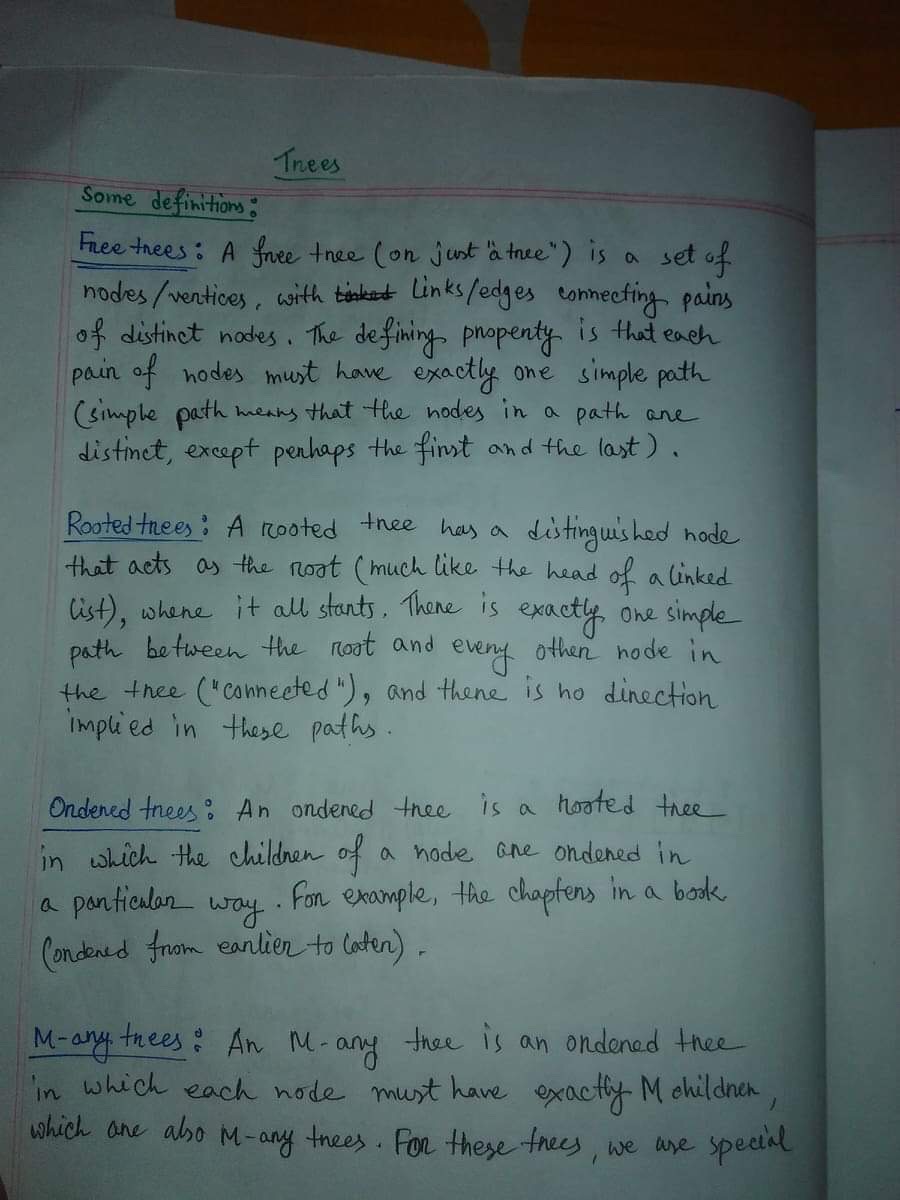 Trees
Some definitions:
Free trees: A free tree (or just "a tree") is a set of
nodes/vertices, with linked links/edges connecting pairs
of distinct nodes. The defining property is that each
pair of nodes must have exactly one simple path
(simple path means that the nodes in a path are
distinct, except perhaps the first and the last).
Rooted trees: A rooted tree has a distinguished node
that acts as the root (much like the head of a linked
list), where it all starts. There is exactly one simple
path between the root and every other node in
the tree ("connected"), and there is no direction
implied in these paths.
Ordered trees: An ordered tree is a rooted tree
in which the children of a node are ordered in
a particular way. For example, the chapters in a book
(ordered from earlier to later).
M-ary trees: An M-ary tree is an ordered tree
in which each node must have exactly M children,
which are also M-ary trees. For these trees, we use special